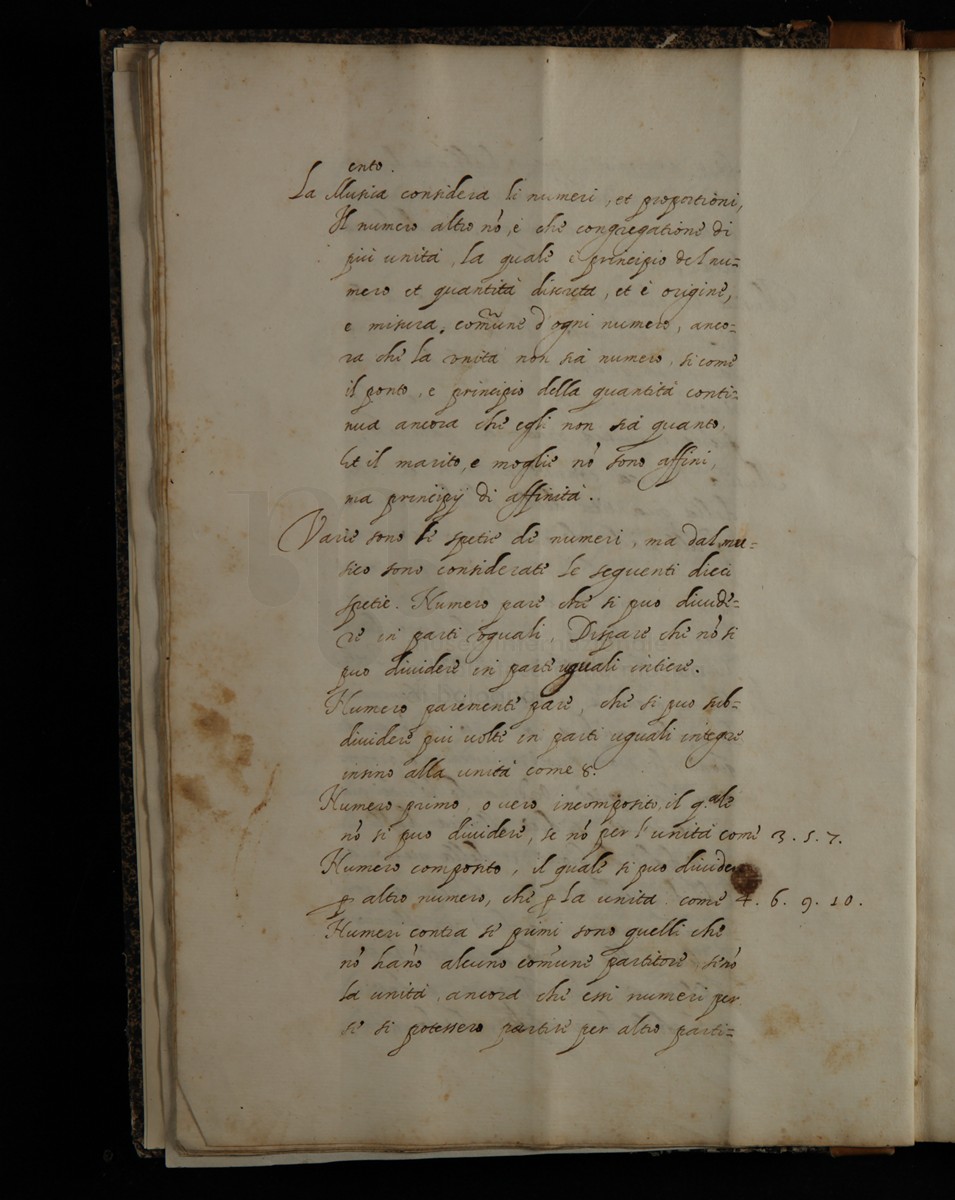 ento.
La Musica considera li numeri, et proportioni,
Il numero altro nō, è che congregatione di
più unità, la quale è principio del nu=
mero et quantità discreta, et è origine,
e misura, com̃une d'ogni numero, anco=
ra che la unità non sia numero, si come
il ponto, e principio della quantità conti=
nua ancora che egli non sia quanto,
Et il marito, e moglie nō sono affini,
ma principij di affinità.
Varie sono le spetie de numeri, ma dal mu=
sico sono considerate le seguenti dieci
spetie. Numero pare che si puo divide=
re in parti uguali, Dispare che nō si
puo dividere in parti uguali intiere.
Numero parimente pare, che si puo sub=
dividere piu volte in parti uguali integre
insino alla unità come 8.
Numero primo, o vero incomposito, il q.ale
nō si puo dividere, se nō per l'unità come 3. 5. 7.
Numero composito, il quale si puo divider
ꝑ altro numero, che ꝑ la unità come 4. 6. 9. 10.
Numeri contra se primi sono quelli che
nō hāno alcuno com̄une partitore, se nō
la unità, ancora che essi numeri per
se si potessero partire per altro parti=